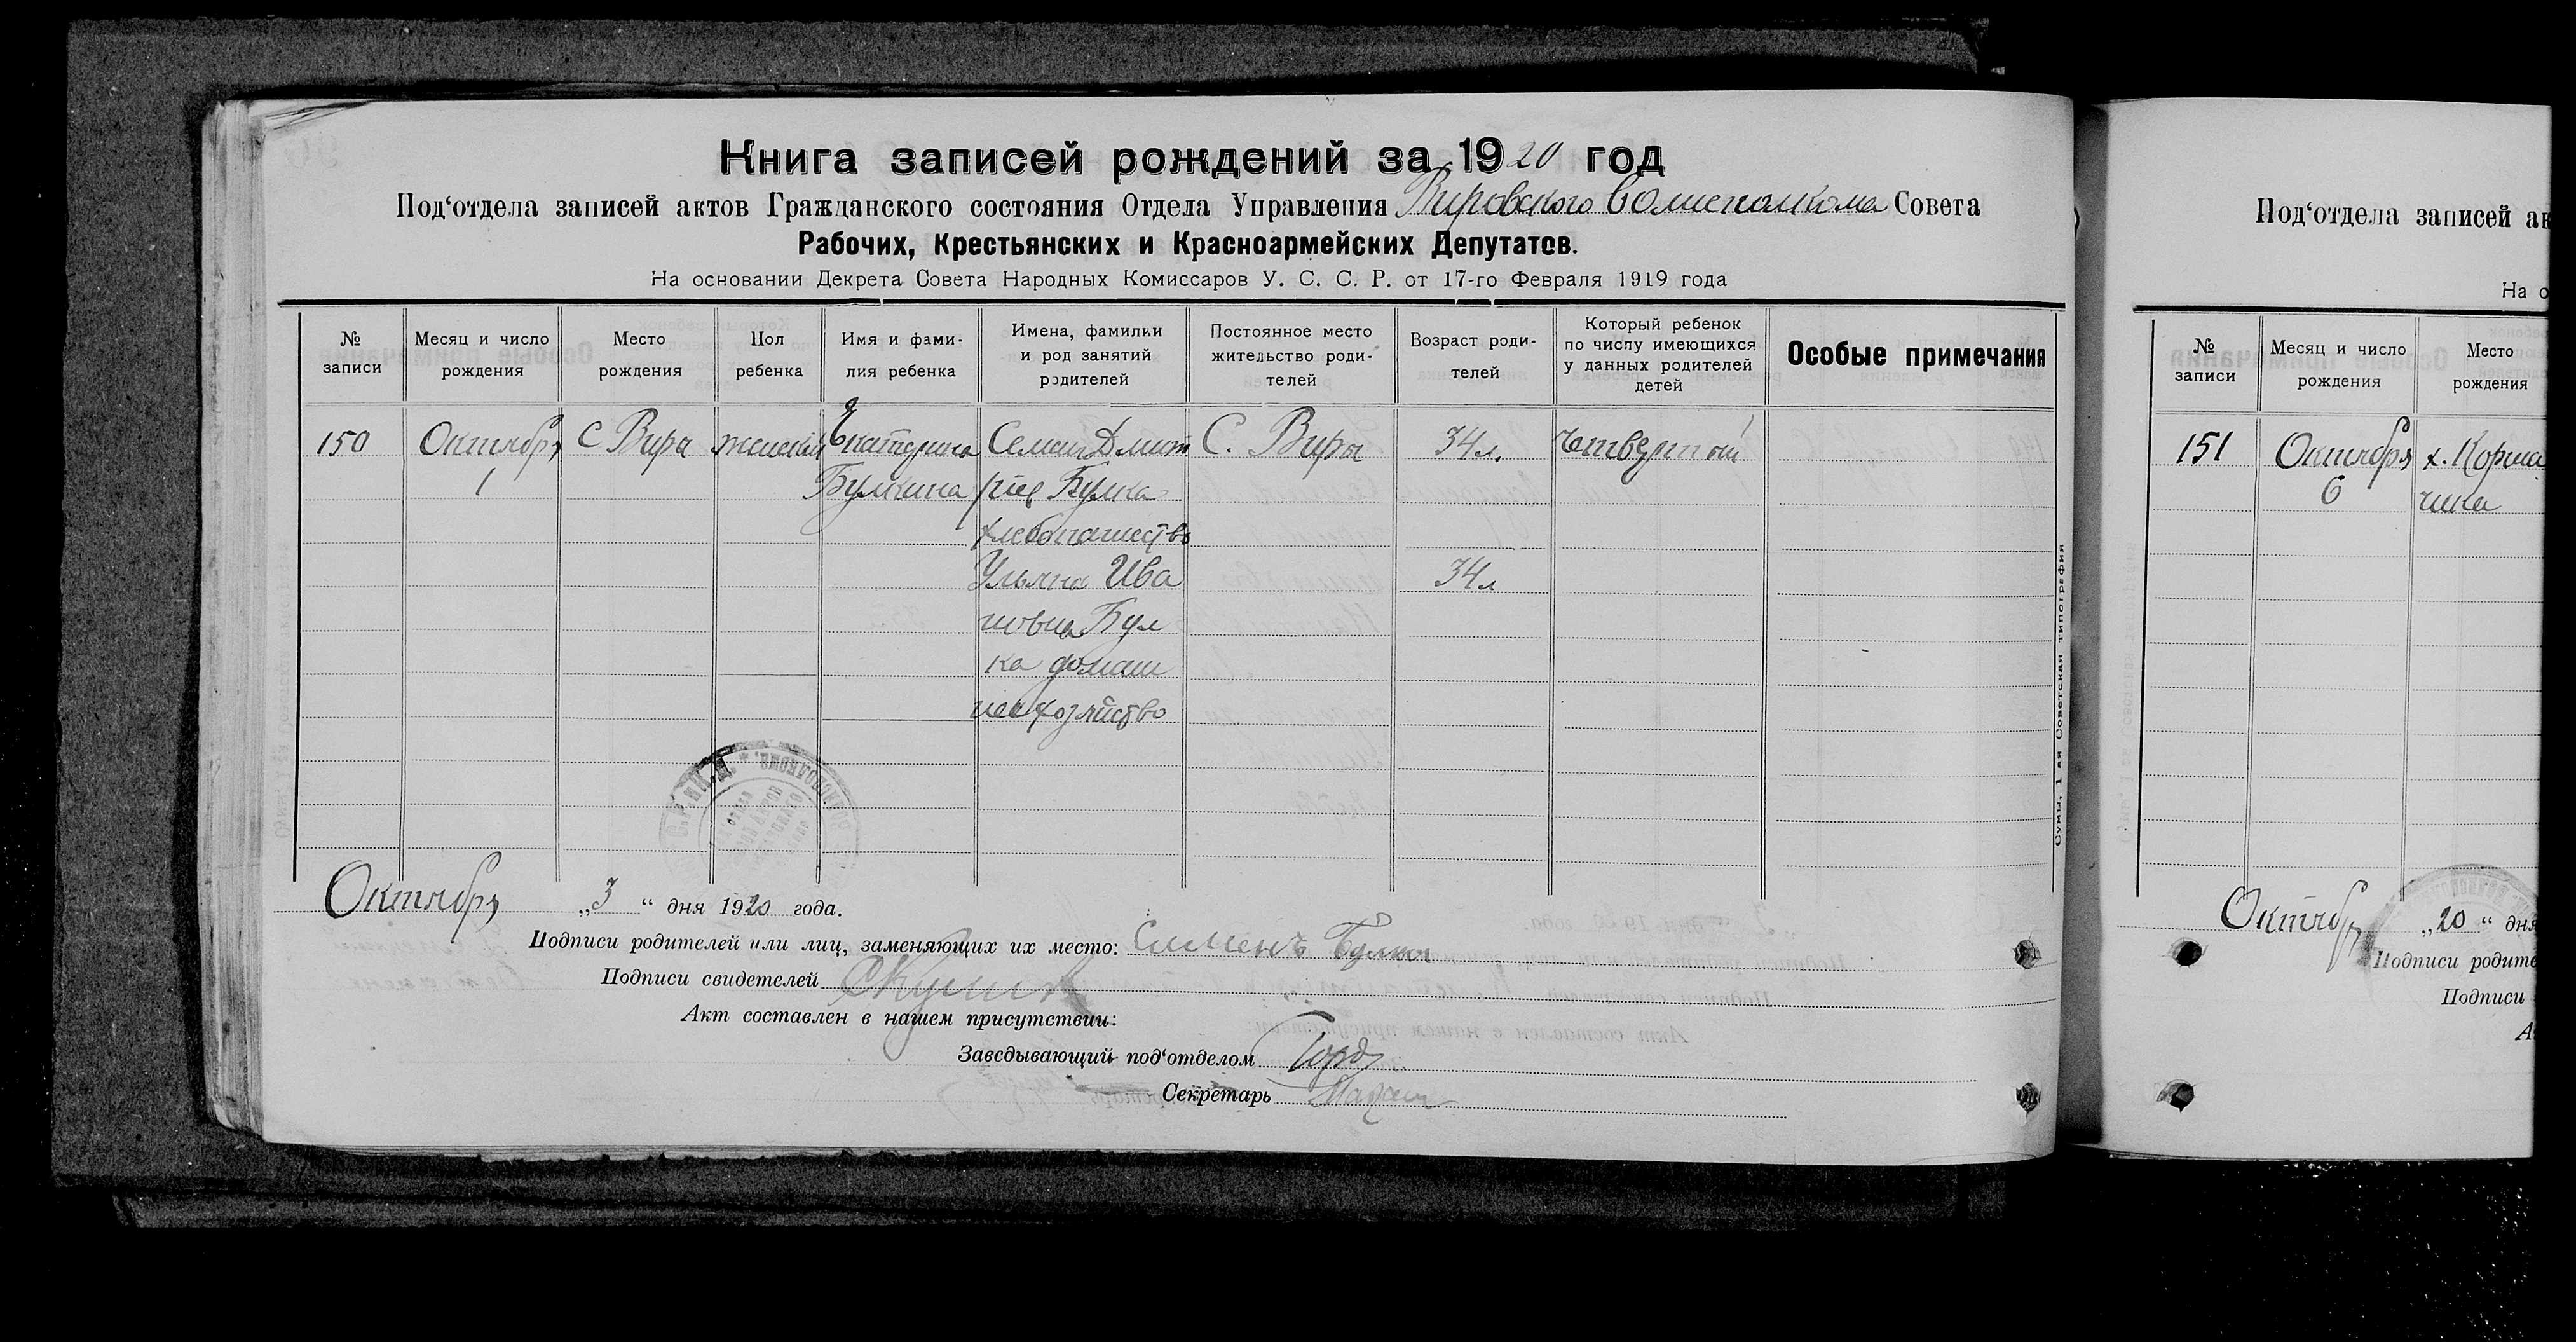 Книга записей рождений за 1920 год
Под‘отдела записей актов Гражданского состояния Отдела Управления Вировского Волисполкома Совета
Рабочих, Крестьянских и Красноармейских Депутатов.
На основании Декрета Совета Народных Комиссаров У. С. С. Р. от 17-го Февраля 1919 года
№ записи
Месяц и число рождения
Место рождения
Пол ребенка
Имя и фами-
лия ребенка
Имена, фамилии
и род занятий
родителей
Постоянное место
жительство роди-
телей
Возраст роди-
телей
Который ребенок
по числу имеющихся
у данных родителей
детей
Особые примечания
150
Октября
1
С Вира
женский
Екатерина
Булкина
Семен Дмит
риев Булка
хлебопашество
Ульяна Ива
новна Бул
ка домаш
нее хозяйство
С. Виры
34 л.
34 л
четвертый
Октября „3“ дня 1920 года.
Подписи родителей или лиц, заменяющих их место: Семенъ Булка
Подписи свидетелей
Акт составлен в нашем присутствии:
Заведывающий под‘отделом
Секретарь
Сумы, 1 ая Советская типография
Под‘отдела записей ак
На о
№ записи
Месяц и число рождения
Место рождения
151
Октября
6
х. Корша
чина
Октября „20“ дня
Подписи родите
Подписи
А